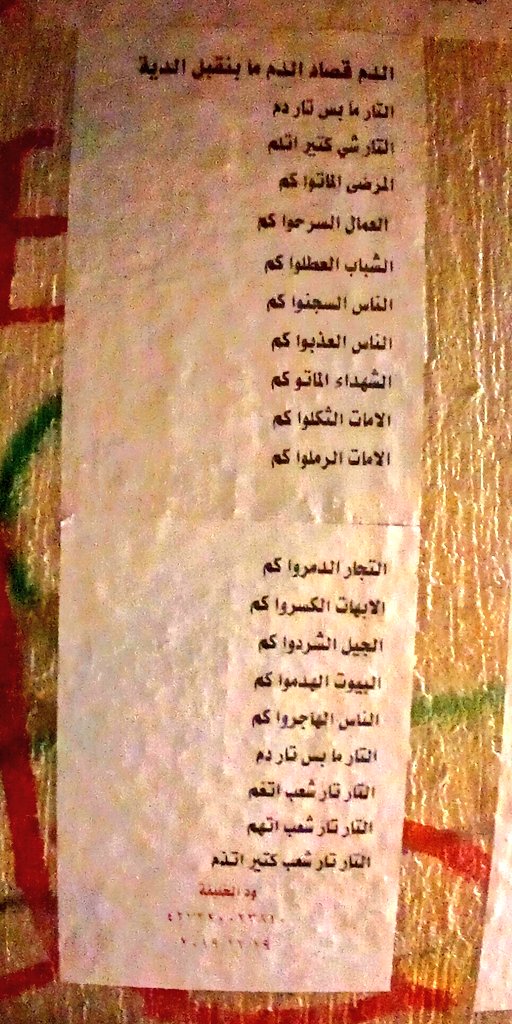 الدم قصاد الدم ما بنقبل الدية
التار ما بس تار دم
التار شي كتير اتلم
المرضى الماتوا كم
العمال السرحوا كم
الشباب العطلوا كم
الناس السجنوا كم
الناس العذبوا كم
الشهداء الماتو كم
الامات الثكلوا كم
الامات الرملوا كم
التجار الدمروا كم
الابهات الكسروا كم
الجيل الشردوا كم
البيوت الهدموا كم
الناس الهاجروا كم
التار ما بس تار دم
التار تار شعب اتغم
التار تار شعب اتهم
التار تار شعب كتير اتذم
ود